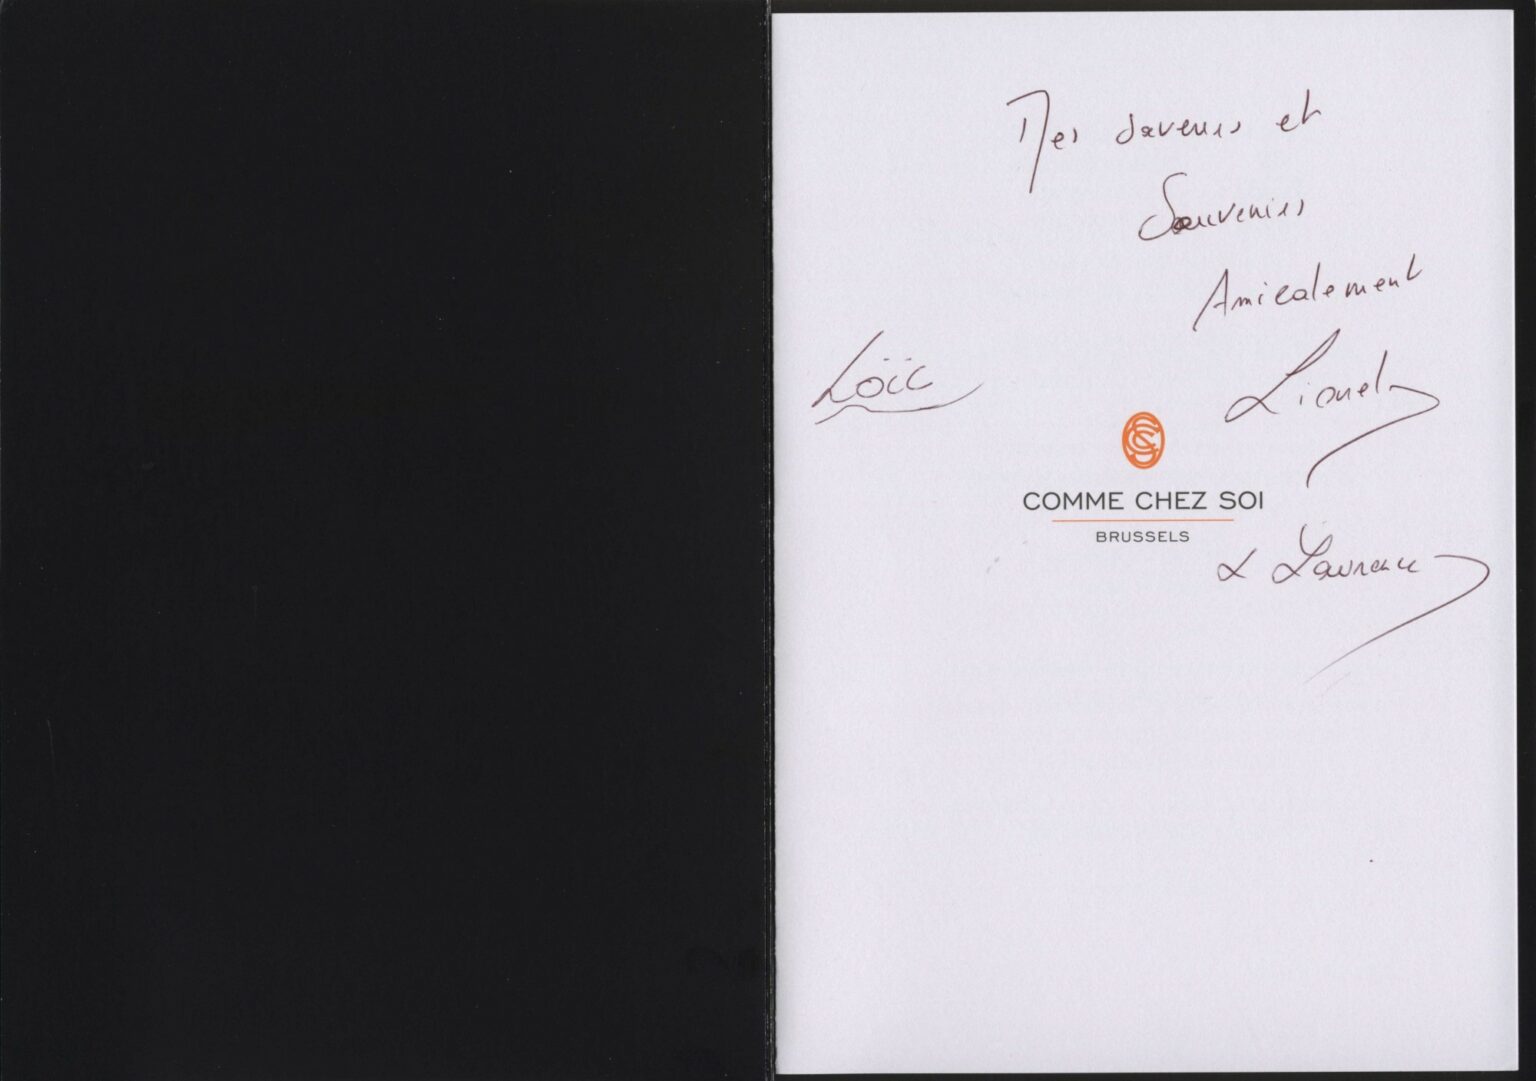 Mes saveurs et
Souvenirs
Amicalement
Loïc
Lionel
COMME CHEZ SOI
BRUSSELS
& Laurence